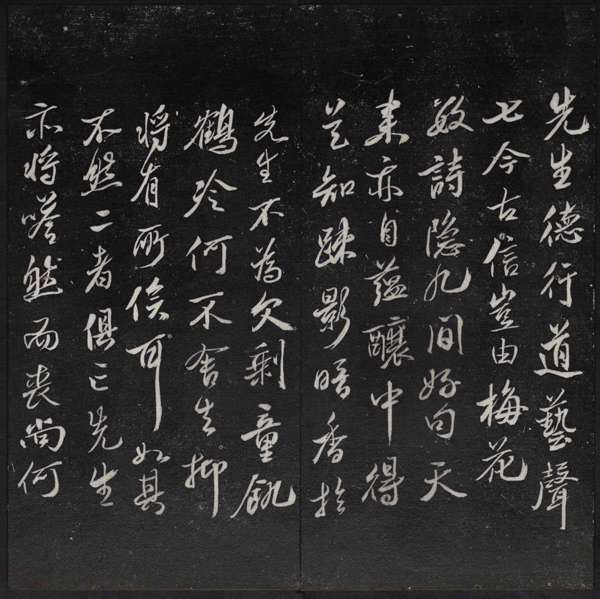 先生德行道藝聲
七今古信豈由梅花
數詩隱几間好句天
來亦自蘊釀中得
是知疎影暗香於
先生不為欠剩童飢
鶴殍何不舍去抑
將有所俟耶如其
不然二者俱亡先生
亦將嗒然而喪尚何